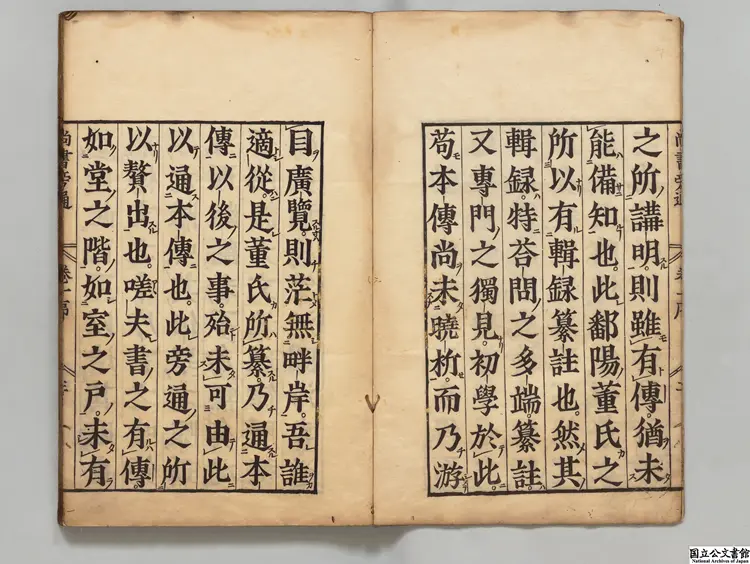 之所講明則雖有傳猶未
能備知也。此鄱陽董氏之
所以有輯録纂註也。然其
輯録。特荅問之多端。纂註。
又專門之獨見。初學於此。
苟本傳尚未曉析。而乃游
目廣覽。則茫無畔岸。吾誰
適從。是董氏所纂。乃通本
傳以後之事。殆未可由此
以通本傳也。此旁通之所
以贅出也。嗟夫書之有傳。
如堂之階。如室之户。未有
尚書旁通
卷一序
国立公文書館
National Archives of Japan